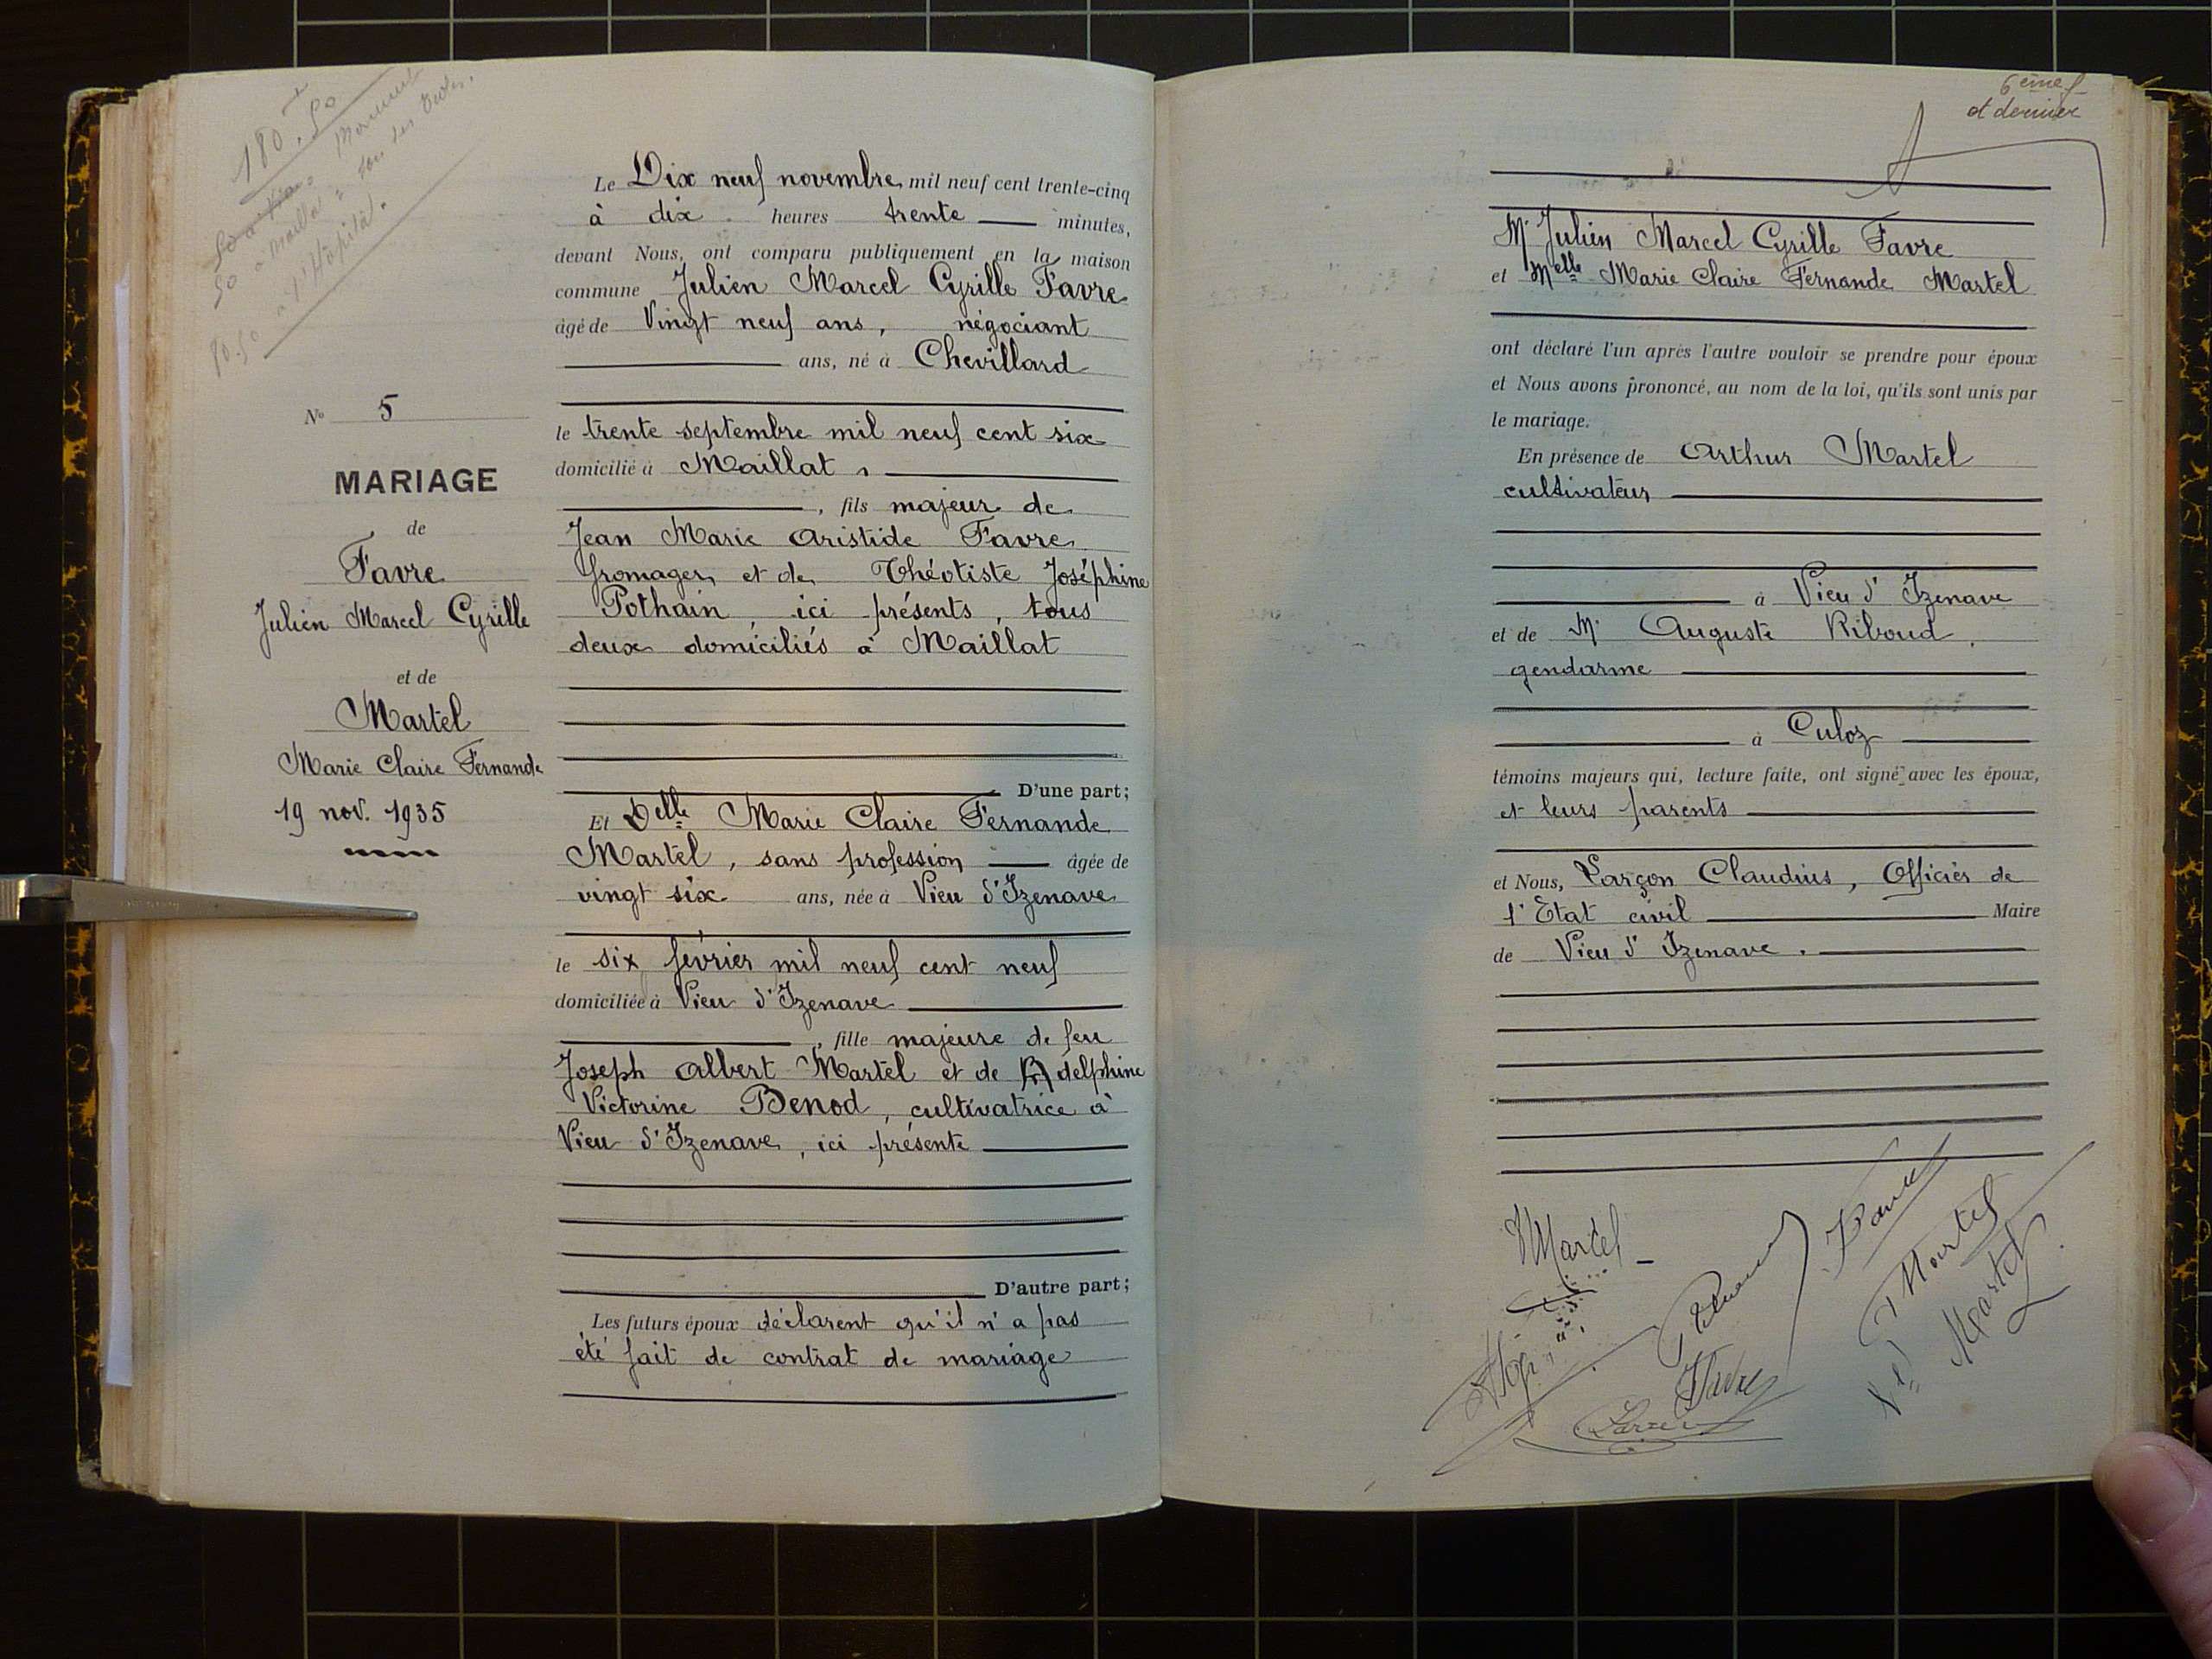 180
à l'Hôpital.
N° 5
MARIAGE
de
Favre
Julien Marcel Cyrille
et de
Martel
Marie Claire Fernande
19 nov. 1935
Le Dix neuf novembre mil neuf cent trente-cinq
à dix heures trente minutes,
devant Nous, ont comparu publiquement en la maison
commune Julien Marcel Cyrille Favre
âgé de Vingt neuf ans, négociant
ans, né à Chevillard
le trente septembre mil neuf cent six
domicilié à Maillat,
, fils majeur de
Jean Marie Aristide Favre
fromager et de Théotiste Joséphine
Pothain, ici présents, tous
deux domiciliés à Maillat
D'une part;
Et Delle Marie Claire Fernande
Martel, sans profession âgée de
vingt six ans, née à Vieu d'Izenave
le six février mil neuf cent neuf
domiciliée à Vieu d'Izenave
, fille majeure de feu
Joseph Albert Martel et de Adelphine
Victorine Benod, cultivatrice à
Vieu d'Izenave, ici présente
D'autre part;
Les futurs époux déclarent qu'il n'a pas
été fait de contrat de mariage
6ème f
et dernier
Mr Julien Marcel Cyrille Favre
et Melle Marie Claire Fernande Martel
ont déclaré l'un après l'autre vouloir se prendre pour époux
et Nous avons prononcé, au nom de la loi, qu'ils sont unis par
le mariage.
En présence de Arthur Martel
cultivateur
à Vieu d'Izenave
et de Mr Auguste Riboud,
gendarme
à Culoz
témoins majeurs qui, lecture faite, ont signé avec les époux,
et leurs parents
et Nous, Larçon Claudius, Officier de
l'Etat civil Maire
de Vieu d'Izenave.
Martel
Favre
Martel
Martel
Favre